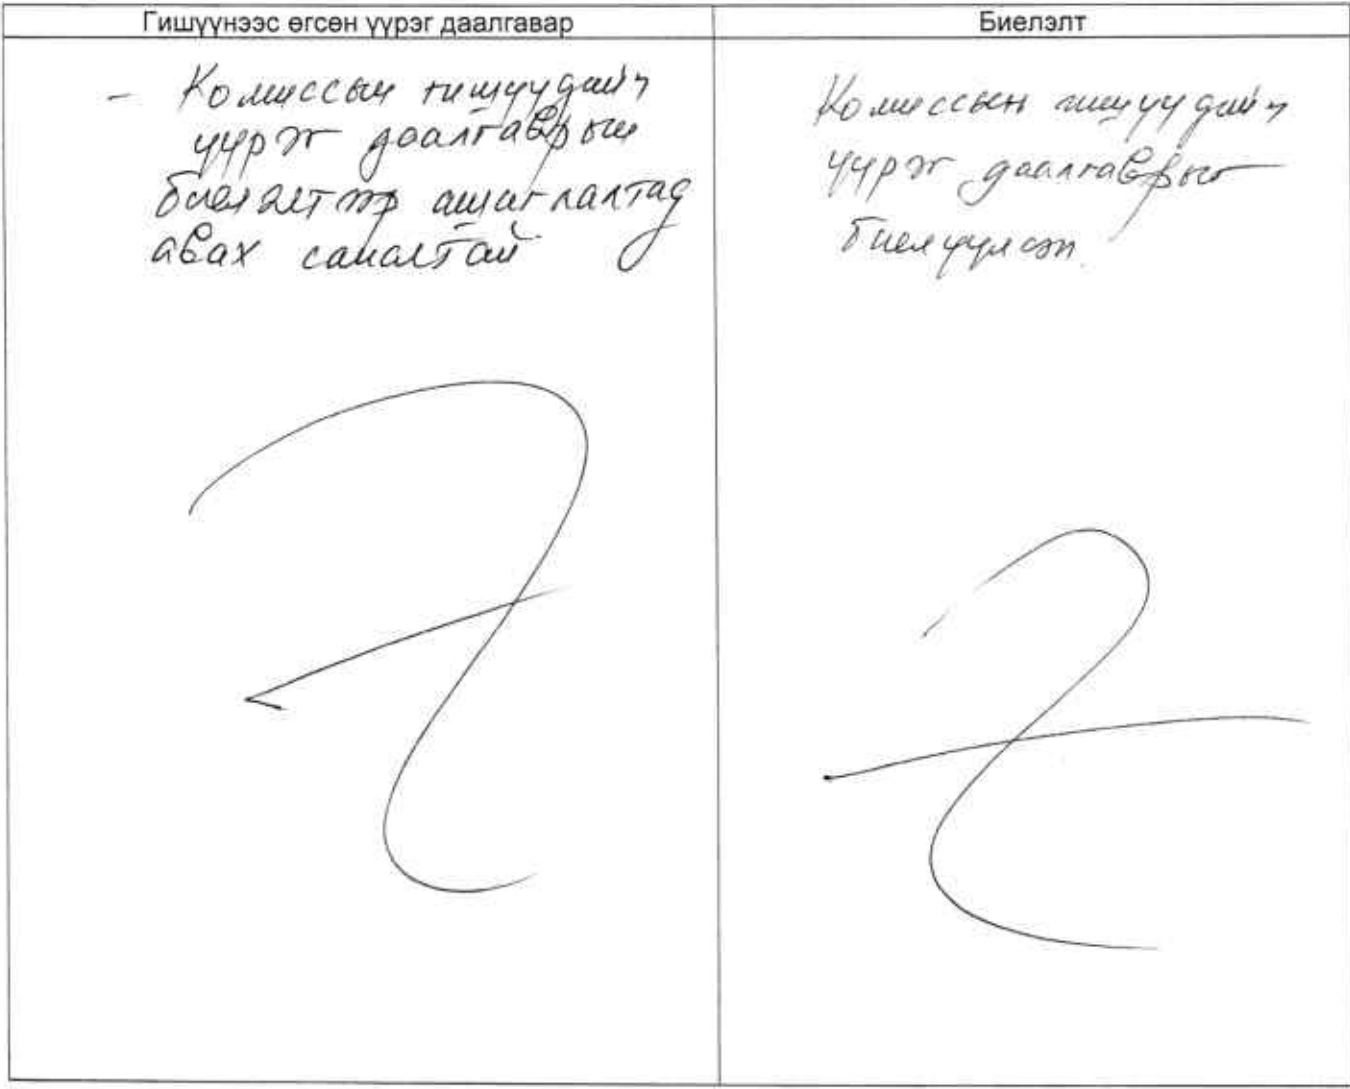 Гишүүнээс өгсөн үүрэг даалгавар
Биелэлт
- Комиссын гишүүдийн
үүрэг даалгаврын
биелэлтээр ашиглалтад
авах саналтай
Комиссын гишүүдийн
үүрэг даалгаврыг
биелүүлсэн.